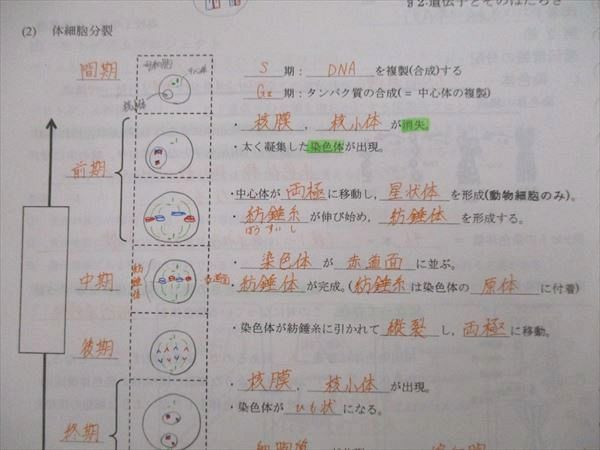 §2.遺伝子とそのはたらき
(2) 体細胞分裂
間期
S 期：DNA を複製(合成)する
G₂ 期：タンパク質の合成(= 中心体の複製)
前期
・核膜，核小体 が消失。
・太く凝集した染色体が出現。
・中心体が 両極 に移動し，星状体 を形成(動物細胞のみ)。
・紡錘糸 が伸び始め，紡錘体 を形成する。
ぼうすいし
中期
紡錘体
赤道面
・染色体 が 赤道面 に並ぶ。
・紡錘体 が完成。(紡錘糸 は染色体の 原体 に付着)
後期
・染色体が紡錘糸に引かれて 縦裂 し，両極 に移動。
終期
・核膜，核小体 が出現。
・染色体が ひも状 になる。